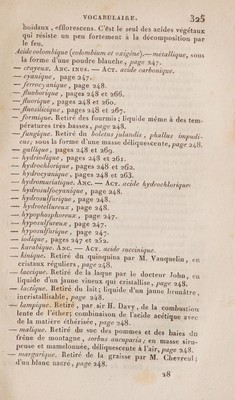 VOCABULAIRE. 325
boidaux, efflorescens. C'est le seul des acides végétaux
qui résiste un peu fortement à la décomposition par
le feu.
Acide colombique (colombium et oxigène).—métallique, sous
la forme d'une poudre blanche, page 247.
— crayeux. Anc. inus. — Act. acide carbonique.
— cyanique, page 247.
— ferrocyanique, page 248.
— fluoborique, pages 248 et 266.
— fluorique, pages 248 et 260.
— fluosilicique, pages 248 et 267.
— formique. Retiré des fourmis; liquide même à des tem-
pératures très basses, page 248.
— fungique. Retiré du boletus julandis, phallus impudi-
cus; sous la forme d'une masse déliquescente, page 248.
— gallique, pages 248 et 269.
— hydriodique, pages 248 et 261.
— hydrochlorique, pages 248 et 262.
— hydrocyanique, pages 248 et 263.
— hydromuriatique. Anc. — Act. acide hydrochlorique.
— hydrosulfocyanique, page 248.
— hydrosulfurique, page 248.
— hydrotellureux, page 248.
— hypophosphoreux, page 247.
— hyposulfureux, page 247.
— hyposulfurique, page 247.
— iodique, pages 247 et 252.
— karabique. Anc. — Act. acide succinique.
— kinique. Retiré du quinquina par M. Vauquelin, en
cristaux réguliers, page 248.
— laccique. Retiré de la laque par le docteur John, en
liquide d'un jaune vineux qui cristallise, page 248.
— lactique. Retiré du lait; liquide d'un jaune brunâtre,
incristallisable, page 248.
— lampique. Retiré, par sir H. Davy, de la combustion
lente de l'éther; combinaison de l'acide acétique avec
de la matière éthérisée, page 248.
— malique. Retiré du suc des pommes et des baies du
frêne de montagne, sorbus aucuparia; en masse siru-
peuse et mamelonnée, déliquescente à l'air, page 248.
— margarique. Retiré de la graisse par M. Chevreul;
d'un blanc nacré, page 248.
28